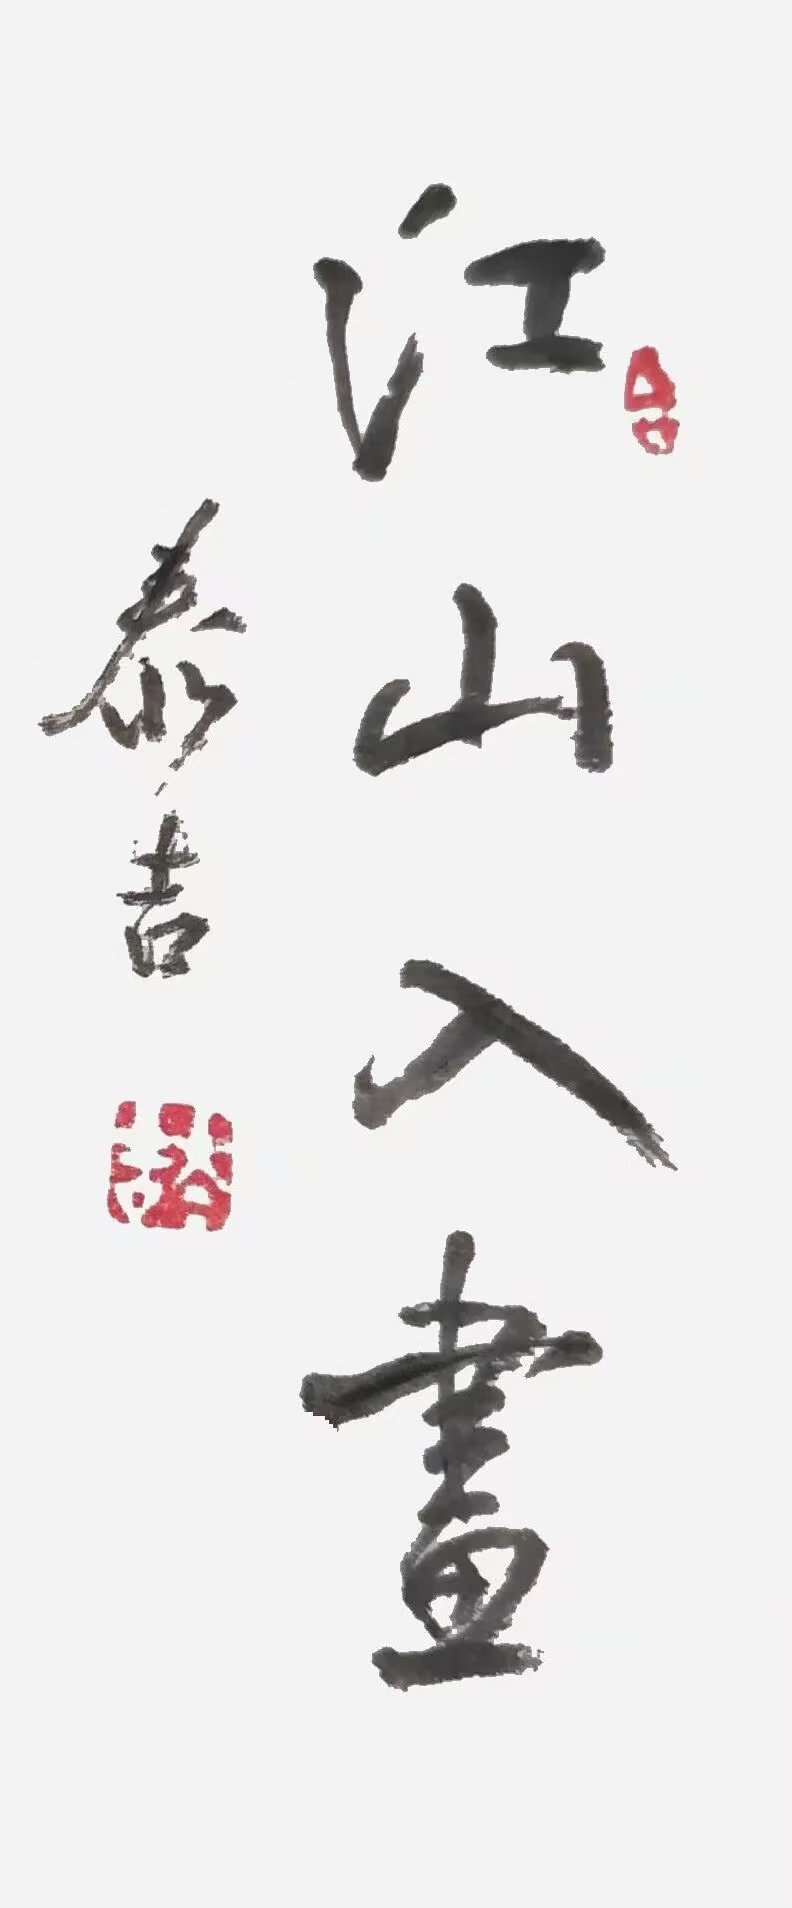 江山入畫
泰吉